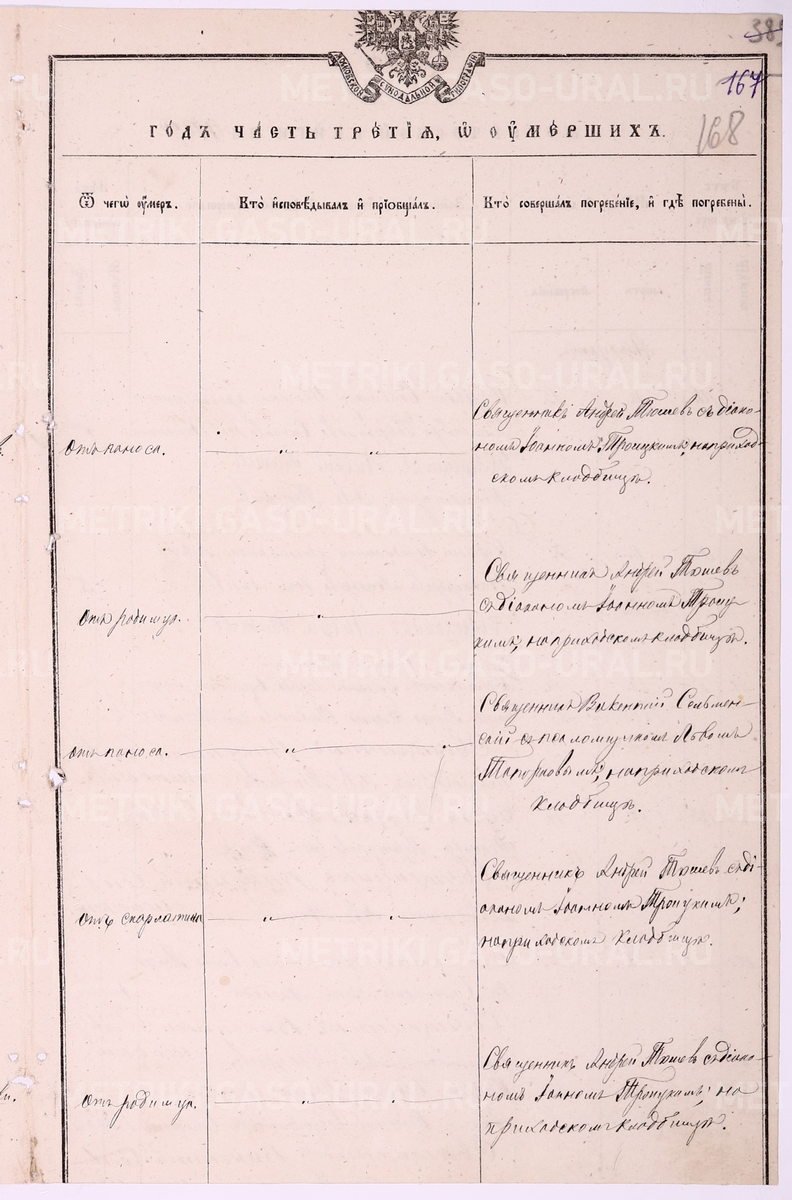 МОСКОВСКОЙ СѴНОДАЛЬНОЙ ТИПОГРАФІИ
167
168
ГОДЪ ЧАСТЬ ТРЕТІѦ, Ѡ ОУМЕРШИХЪ.
Ѿ чегѡ оумеръ.
Кто исповѣдывалъ и пріобщалъ.
Кто совершалъ погребеніе, и гдѣ погребены.
Отъ поноса.
Священникъ Андрей Тюшевъ съ діако-
номъ Іоанномъ Троицкимъ; на приход-
скомъ кладбищѣ.
Отъ родимца.
Священникъ Андрей Тюшевъ
съ діакономъ Іоанномъ Троиц-
кимъ; на приходскомъ кладбищѣ.
Отъ поноса.
Священникъ Викентій
съ псаломщикомъ Львомъ
на приходскомъ
кладбищѣ.
Отъ скарлатины
Священникъ Андрей Тюшевъ съ ді-
акономъ Іоанномъ Троицкимъ;
на приходскомъ кладбищѣ.
Отъ родимца.
Священникъ Андрей Тюшевъ съ діако-
номъ Іоанномъ Троицкимъ; на
приходскомъ кладбищѣ.
METRIKI.GASO-URAL.RU